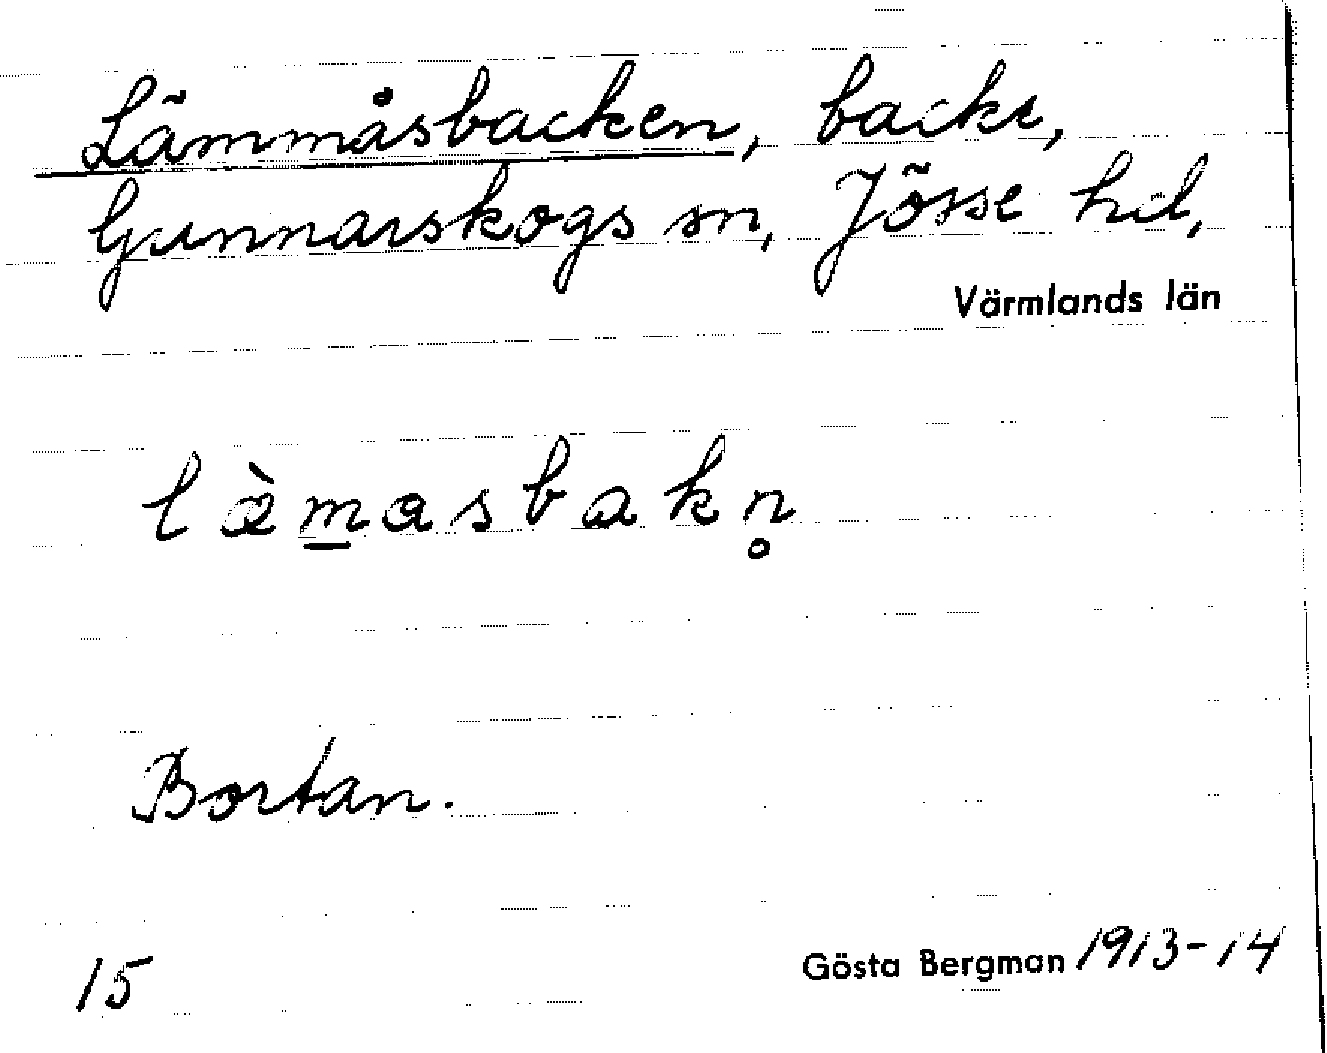 Lämmåsbacken, backe,
Gunnarskogs sn, Jösse hd,
Värmlands län
làmasbakn̥
Bortan.
15
Gösta Bergman 1913-14